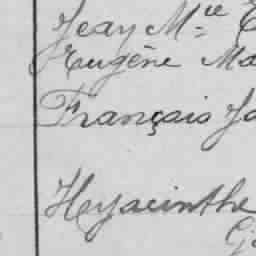 Jean M^lle
Eugène Ma
François Jo
Hyacinthe